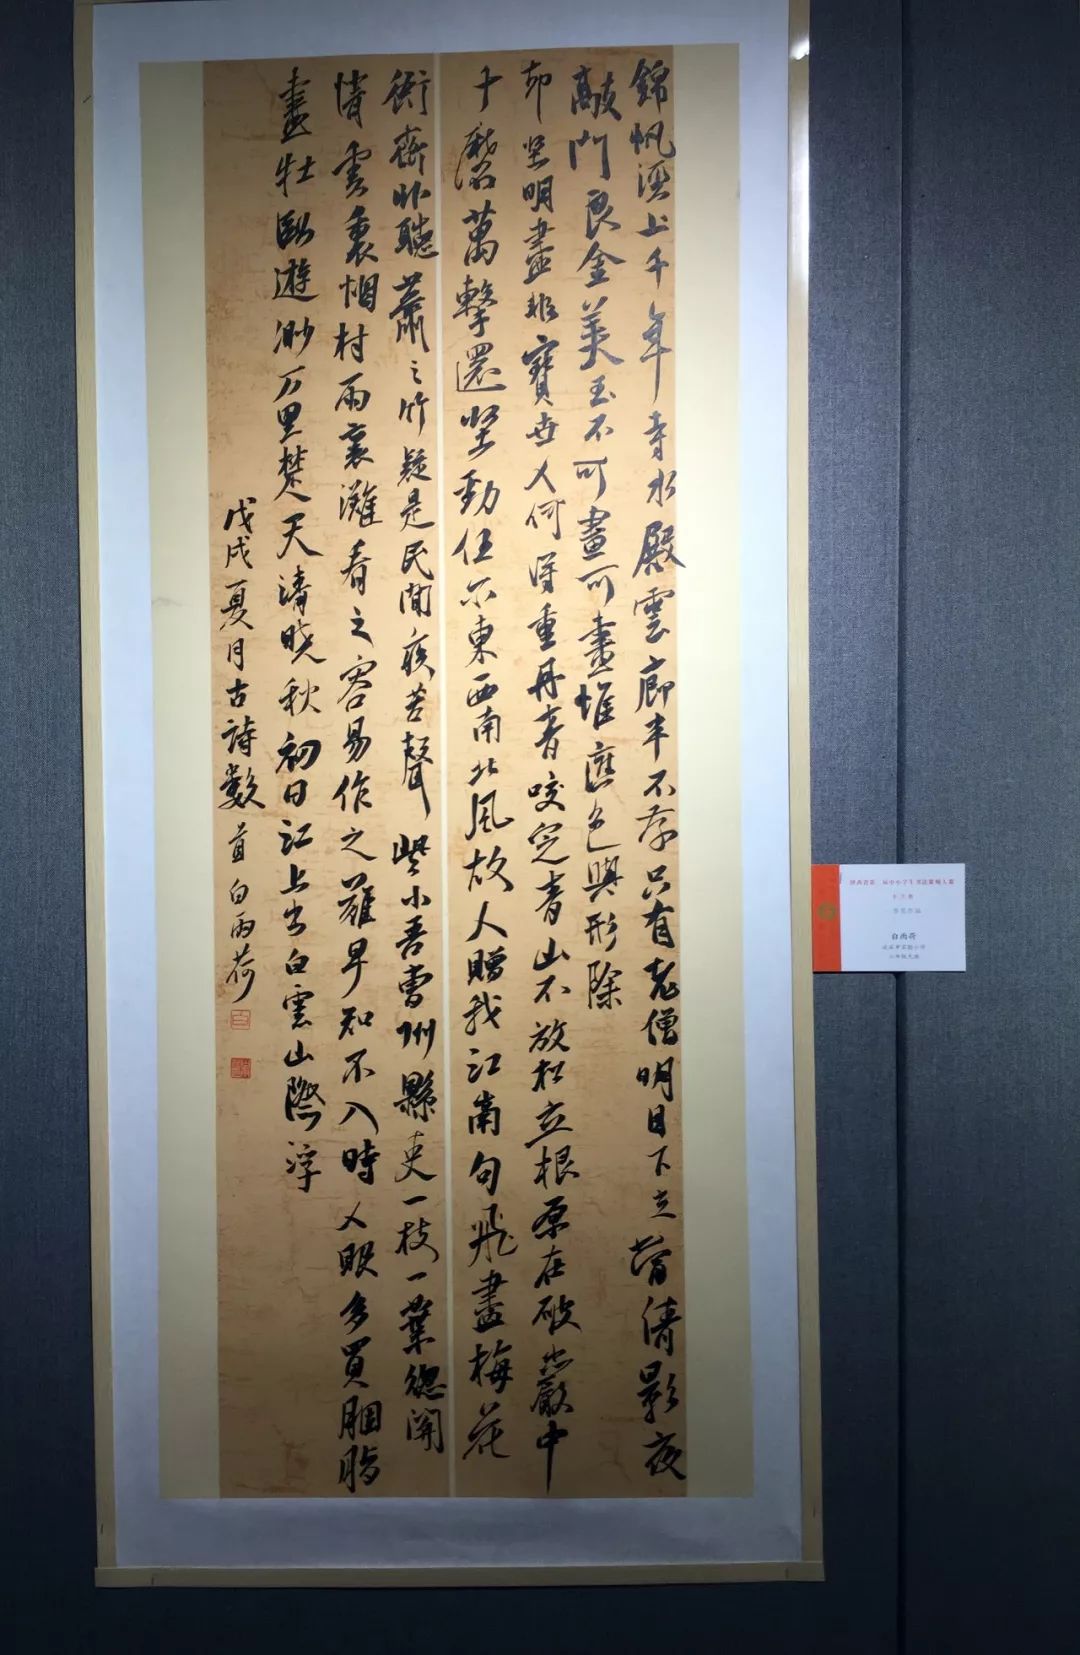 錦帆涇上千年寺水殿雲廊半不存只有老僧明月下立當倩影夜
敲門良金美玉不可畫可畫惟應色與形除
却空明盡非寶世人何得重丹青咬定青山不放松立根原在破巖中
十磨萬擊還堅勁任尔東西南北風故人贈我江南句飛盡梅花
衙齋卧聽蕭之竹疑是民間疾苦聲些小吾曹州縣吏一枝一葉總關
情雲裏烟村雨裏灘看之容易作之難早知不入時人眼多買胭脂
畫牡臥遊渺万里楚天清曉秋初日江上出白雲山際浮
戊戌夏月古詩數首白雨荷
白雨荷